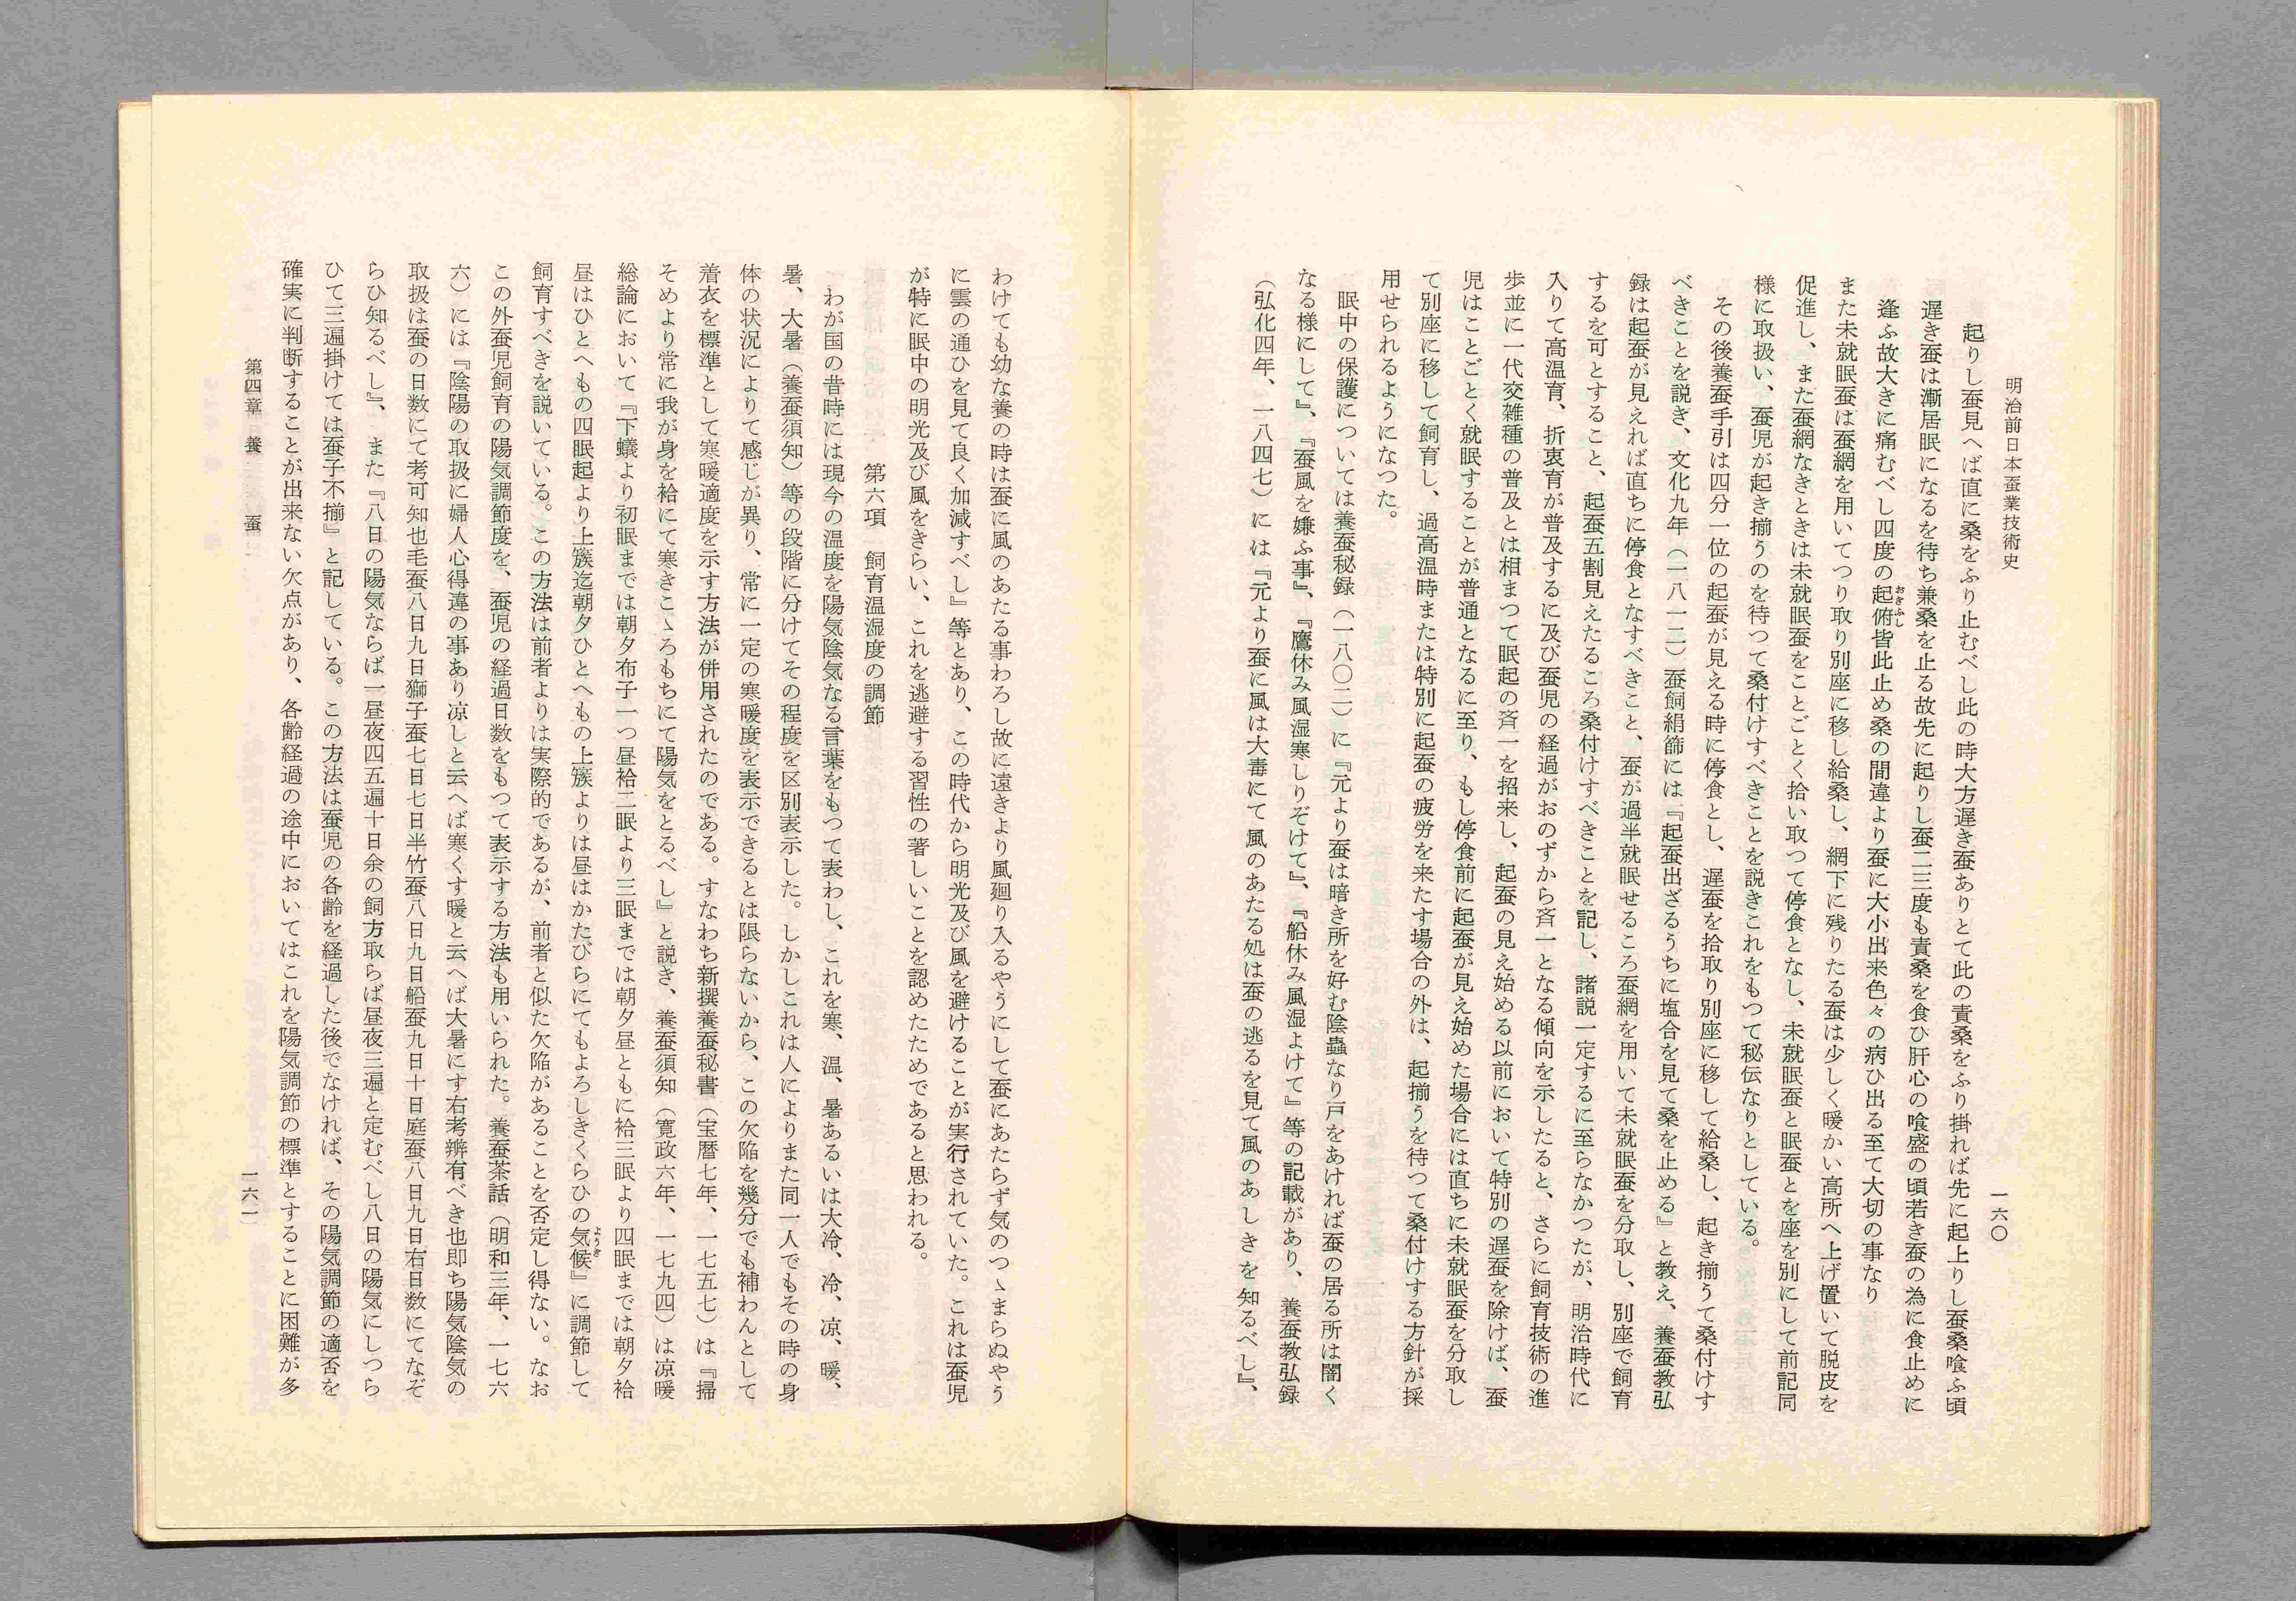 明治前日本蚕業技術史
一六〇
起りし蚕見へば直に桑をふり止むべし此の時大方遅き蚕ありとて此の責桑をふり掛れば先に起上りし蚕桑喰ふ頃
遅き蚕は漸居眠になるを待ち兼桑を止る故先に起りし蚕二三度も責桑を食ひ肝心の喰盛の頃若き蚕の為に食止めに
逢ふ故大きに痛むべし四度の起俯皆此止め桑の間違より蚕に大小出来色々の病ひ出る至て大切の事なり
おきふし
また未就眠蚕は蚕網を用いてつり取り別座に移し給桑し、網下に残りたる蚕は少しく暖かい高所へ上げ置いて脱皮を
促進し、また蚕網なきときは未就眠蚕をことごとく拾い取つて停食となし、未就眠蚕と眠蚕とを座を別にして前記同
様に取扱い、蚕児が起き揃うのを待つて桑付けすべきことを説きこれをもつて秘伝なりとしている。
その後養蚕手引は四分一位の起蚕が見える時に停食とし、遅蚕を拾取り別座に移して給桑し、起き揃うて桑付けす
べきことを説ぎ、文化九年（一八一二）蚕飼絹篩には『起蚕出ざるうちに塩合を見て桑を止める』と教え、養蚕教弘
録は起蚕が見えれば直ちに停食となすべきこと、蚕が過半就眠せるころ蚕網を用いて未就眠蚕を分取し、別座で飼育
するを可とすること、起蚕五割見えたるころ桑付けすべきことを記し、諸説一定するに至らなかつたが、明治時代に
入りて高温育、折衷育が普及するに及び蚕児の経過がおのずから斉一となる傾向を示したると、さらに飼育技術の進
歩並に一代交雑種の普及とは相まつて眠起の斉一を招来し、起蚕の見え始める以前において特別の遅蚕を除けば、蚕
児はことごとく就眠することが普通となるに至り、もし停食前に起蚕が見え始めた場合には直ちに未就眠蚕を分取し
て別座に移して飼育し、過高温時または特別に起蚕の疲労を来たす場合の外は、起揃うを待つて桑付けする方針が採
用せられるようになつた。
眠中の保護については養蚕秘録（一八〇二）に『元より蚕は暗き所を好む陰蟲なり戸をあければ蚕の居る所は闇く
なる様にして』、『蚕風を嫌ふ事』、『鷹休み風湿寒しりぞけて』、『船休み風湿よけて』等の記載があり、養蚕教弘録
（弘化四年、一八四七）には『元より蚕に風は大毒にて風のあたる処は蚕の逃るを見て風のあしきを知るべし』、
わけても幼な養の時は蚕に風のあたる事わろし故に遠きより風廻り入るやうにして蚕にあたらず気のつゝまらぬやう
に雲の通ひを見て良く加減すべし』等とあり、この時代から明光及び風を避けることが実行されていた。これは蚕児
が特に眠中の明光及び風をきらい、これを逃避する習性の著しいことを認めたためであると思われる。
第六項　飼育温湿度の調節
わが国の昔時には現今の温度を陽気陰気なる言葉をもつて表わし、これを寒、温、暑あるいは大冷、冷、凉、暖、
暑、大暑（養蚕須知）等の段階に分けてその程度を区別表示した。しかしこれは人によりまた同一人でもその時の身
体の状況によりて感じが異り、常に一定の寒暖度を表示できるとは限らないから、この欠陥を幾分でも補わんとして
着衣を標準として寒暖適度を示す方法が併用されたのである。すなわち新撰養蚕秘書（宝暦七年、一七五七）は『掃
そめより常に我が身を袷にて寒きこゝろもちにて陽気をとるべし』と説き、養蚕須知（寛政六年、一七九四）は凉暖
総論において『下蟻より初眠までは朝夕布子一つ昼袷二眠より三眠までは朝夕昼ともに袷三眠より四眠までは朝夕袷
昼はひとへもの四眠起より上簇迄朝夕ひとへもの上簇よりは昼はかたびらにてもよろしきくらひの気候』に調節して
ようき
飼育すべきを説いている。この方法は前者よりは実際的であるが、前者と似た欠陥があることを否定し得ない。なお
この外蚕児飼育の陽気調節度を、蚕児の経過日数をもつて表示する方法も用いられた。養蚕茶話（明和三年、一七六
六）には『陰陽の取扱に婦人心得違の事あり凉しと云へば寒くす暖と云へば大暑にす右考辨有べき也即ち陽気陰気の
取扱は蚕の日数にて考可知也毛蚕八日九日獅子蚕七日七日半竹蚕八日九日船蚕九日十日庭蚕八日九日右日数にてなぞ
らひ知るべし』、また『八日の陽気ならば一昼夜四五遍十日余の飼方取らば昼夜三遍と定むべし八日の陽気にしつら
ひて三遍掛けては蚕子不揃』と記している。この方法は蚕児の各齢を経過した後でなければ、その陽気調節の適否を
確実に判断することが出来ない欠点があり、各齢経過の途中においてはこれを陽気調節の標準とすることに困難が多
第四章　養　蚕
一六一